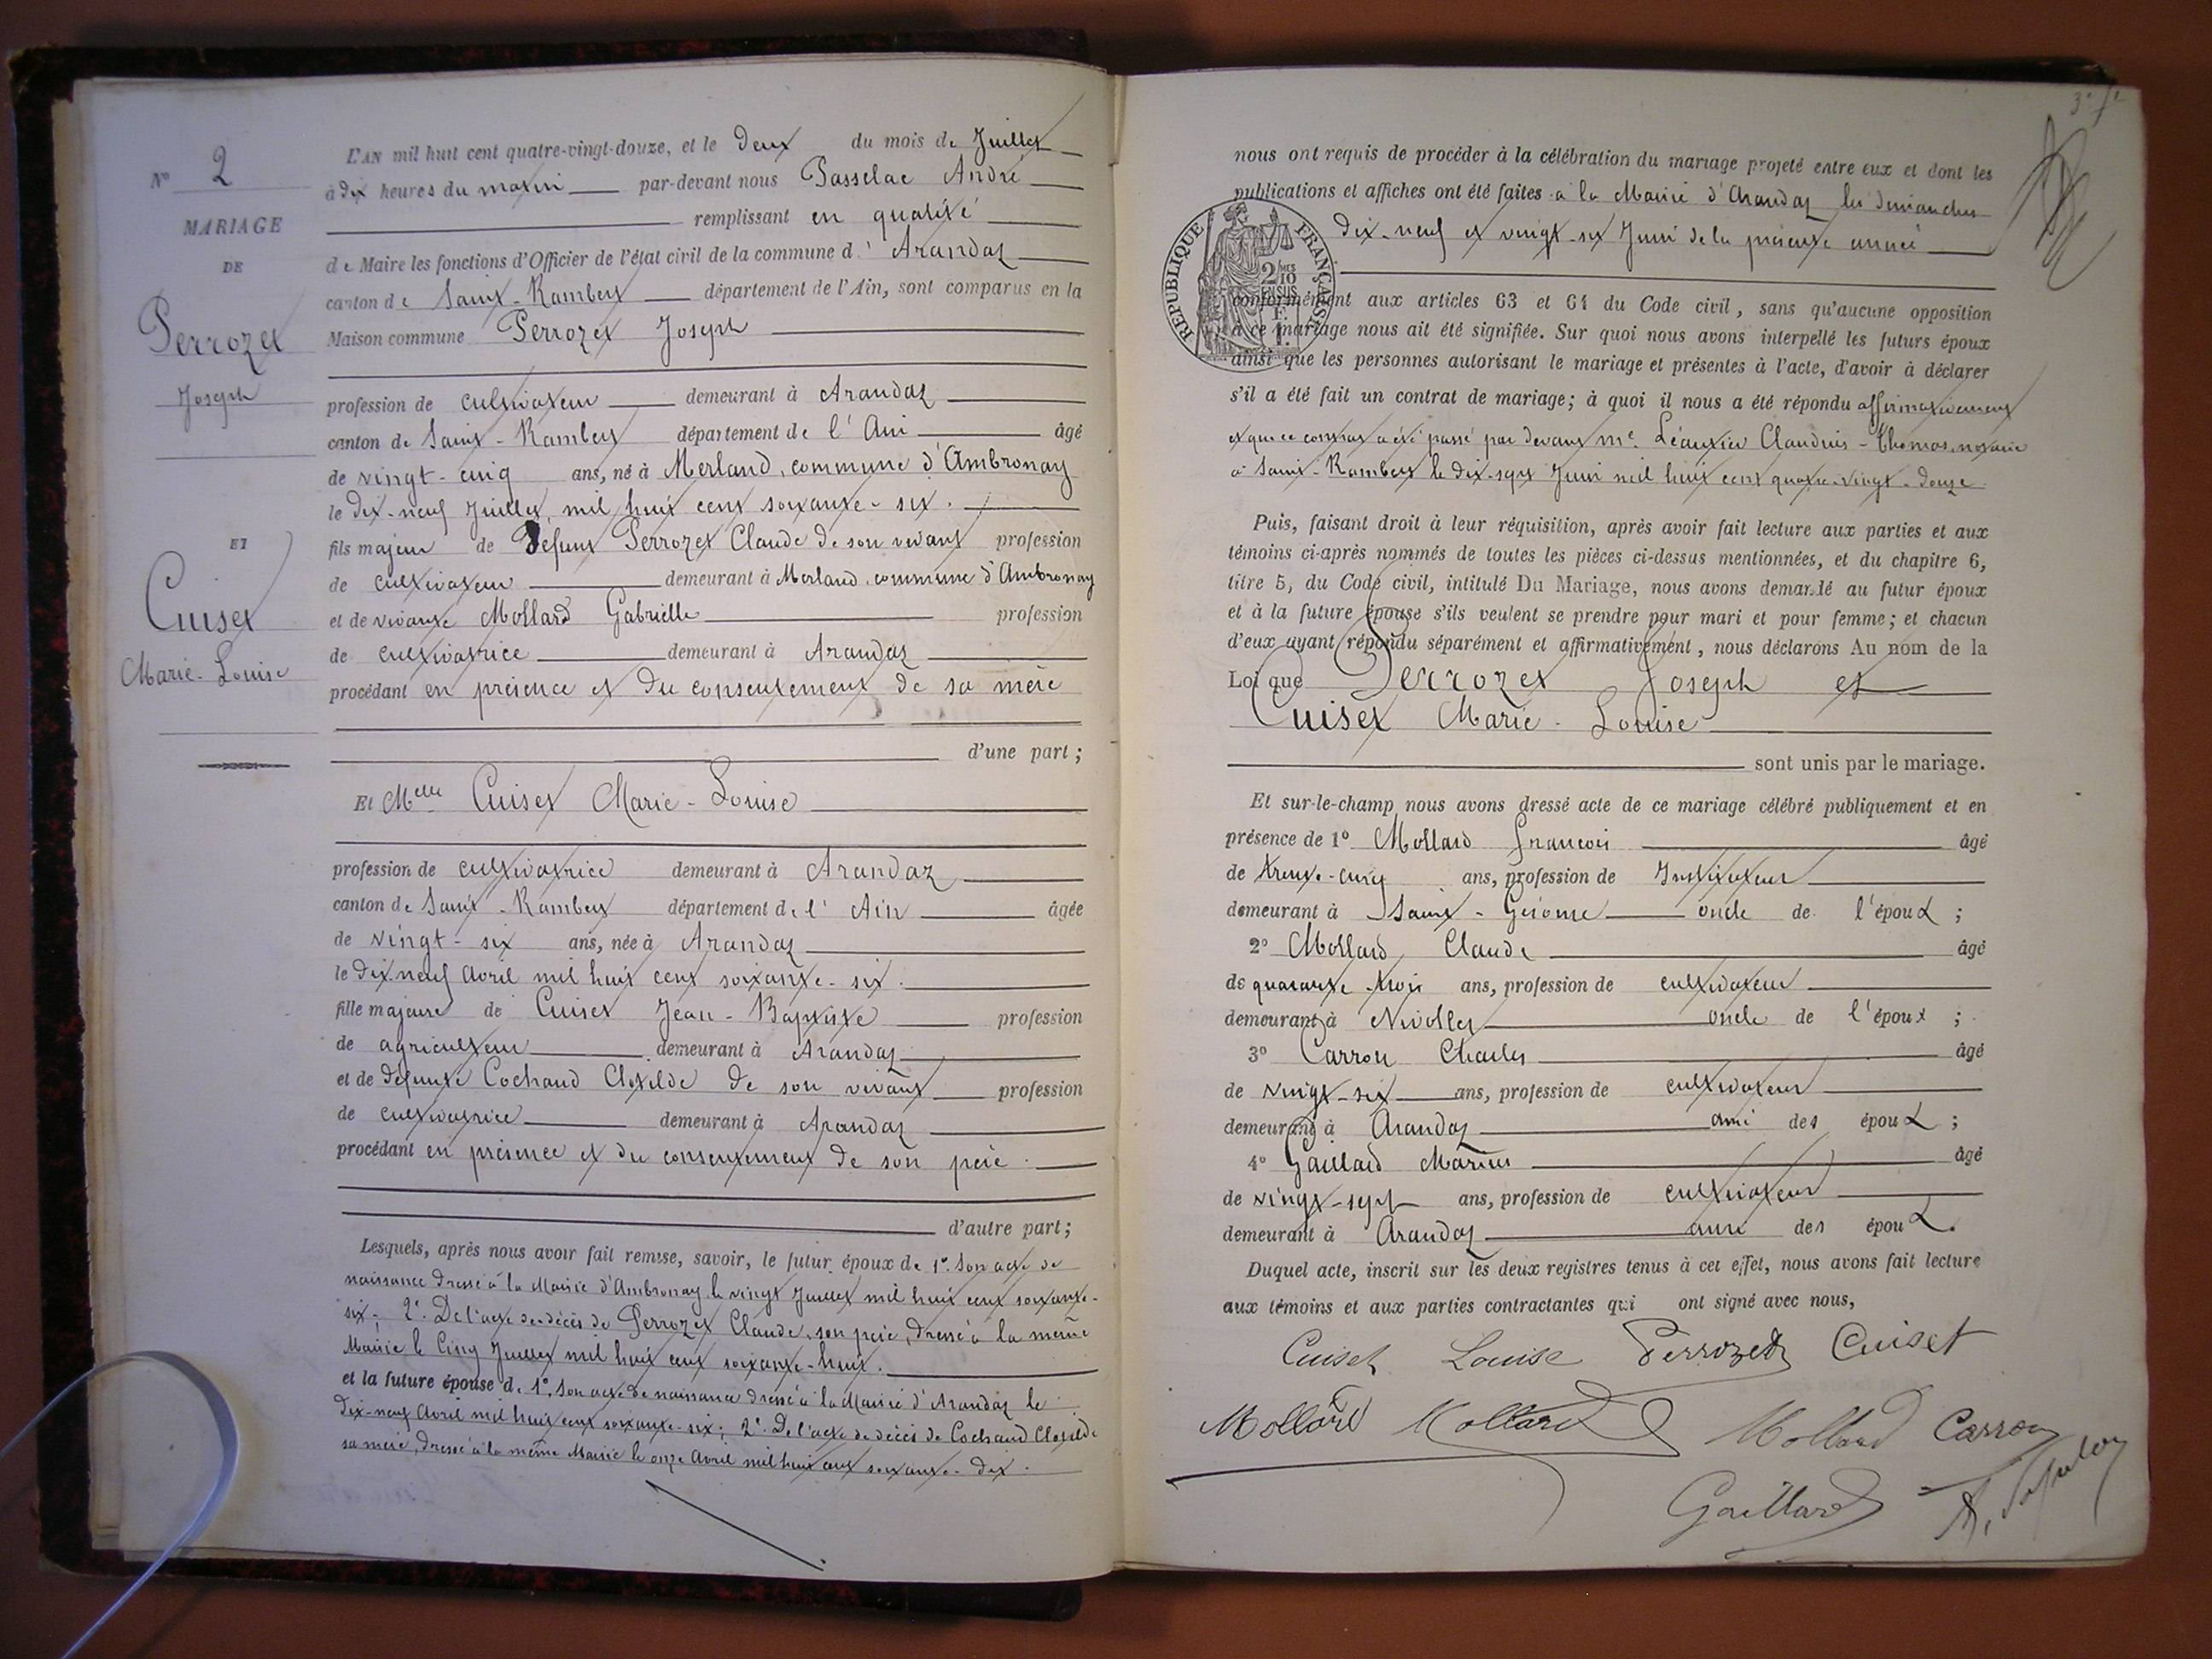 N° 2
MARIAGE
DE
Perrozet
Joseph
ET
Cuiset
Marie-Louise
L'AN mil huit cent quatre-vingt-douze, et le deux du mois de Juillet
à dix heures du matin par-devant nous Passelac André
remplissant en qualité
de Maire les fonctions d'Officier de l'état civil de la commune d' Arandaz
canton de Saint-Rambert département de l'Ain, sont comparus en la
Maison commune Perrozet Joseph
profession de cultivateur demeurant à Arandaz
canton de Saint-Rambert département de l'Ain âgé
de vingt-cinq ans, né à Merland, commune d'Ambronay
le dix-neuf Juillet mil huit cent soixante-six.
fils majeur de Défunt Perrozet Claude de son vivant profession
de cultivateur demeurant à Merland, commune d'Ambronay
et de vivante Mollard Gabrielle profession
de cultivatrice demeurant à Arandaz
procédant en présence et du consentement de sa mère
d'une part;
Et Melle Cuiset Marie-Louise
profession de cultivatrice demeurant à Arandaz
canton de Saint-Rambert département de l'Ain âgée
de vingt-six ans, née à Arandaz
le dix-neuf Avril mil huit cent soixante-six.
fille majeure de Cuiset Jean-Baptiste profession
de agriculteur demeurant à Arandaz
et de défunte Cochaud Clotilde de son vivant profession
de cultivatrice demeurant à Arandaz
procédant en présence et du consentement de son père.
d'autre part;
Lesquels, après nous avoir fait remise, savoir, le futur époux de 1°. Son acte de
naissance dressé à la Mairie d'Ambronay le vingt Juillet mil huit cent soixante-
six; 2°. De l'acte de décès de Perrozet Claude, son père, dressé à la même
Mairie le Cinq Juillet mil huit cent soixante-huit.
et la future épouse de 1°. Son acte de naissance dressé à la Mairie d'Arandaz le
dix-neuf Avril mil huit cent soixante-six; 2°. De l'acte de décès de Cochaud Clotilde
sa mère, dressé à la même Mairie le onze Avril mil huit cent soixante-dix.
nous ont requis de procéder à la célébration du mariage projeté entre eux et dont les
publications et affiches ont été faites à la Mairie d'Arandaz les dimanches
dix-neuf et vingt-six Juin de la présente année
REPUBLIQUE FRANÇAISE
2/10 EN SUS
conformément aux articles 63 et 64 du Code civil, sans qu'aucune opposition
à ce mariage nous ait été signifiée. Sur quoi nous avons interpellé les futurs époux
ainsi que les personnes autorisant le mariage et présentes à l'acte, d'avoir à déclarer
s'il a été fait un contrat de mariage; à quoi il nous a été répondu affirmativement
et que ce contrat a été passé par devant Me. Claudius-Thomas, notaire
à Saint-Rambert le dix-sept Juin mil huit cent quatre-vingt-douze
Puis, faisant droit à leur réquisition, après avoir fait lecture aux parties et aux
témoins ci-après nommés de toutes les pièces ci-dessus mentionnées, et du chapitre 6,
titre 5, du Code civil, intitulé Du Mariage, nous avons demandé au futur époux
et à la future épouse s'ils veulent se prendre pour mari et pour femme; et chacun
d'eux ayant répondu séparément et affirmativement, nous déclarons Au nom de la
Loi que Perrozet Joseph et
Cuiset Marie-Louise
sont unis par le mariage.
Et sur-le-champ nous avons dressé acte de ce mariage célébré publiquement et en
présence de 1° Mollard François âgé
de trente-cinq ans, profession de Instituteur
demeurant à Saint-Gérome oncle de l'époux;
2° Mollard Claude âgé
de quarante-trois ans, profession de cultivateur
demeurant à Nivollet oncle de l'époux;
3° Carron Charles âgé
de vingt-six ans, profession de cultivateur
demeurant à Arandaz ami des époux;
4° Gaillard Marius âgé
de vingt-sept ans, profession de cultivateur
demeurant à Arandaz ami des époux.
Duquel acte, inscrit sur les deux registres tenus à cet effet, nous avons fait lecture
aux témoins et aux parties contractantes qui ont signé avec nous,
Cuiset Louise Perrozet Cuiset
Mollard Mollard Mollard Carron
Gaillard